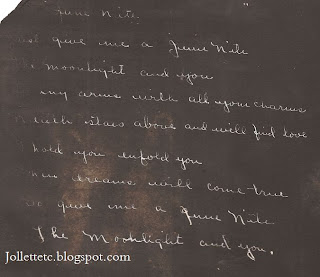 June Nite
give me a June Nite
moonlight and you
my arms with all your charms
with stars above and we'll find love
hold you enfold you
dreams will come true
give me a June Nite
The Moonlight and you.
Jollettetc.blogspot.com